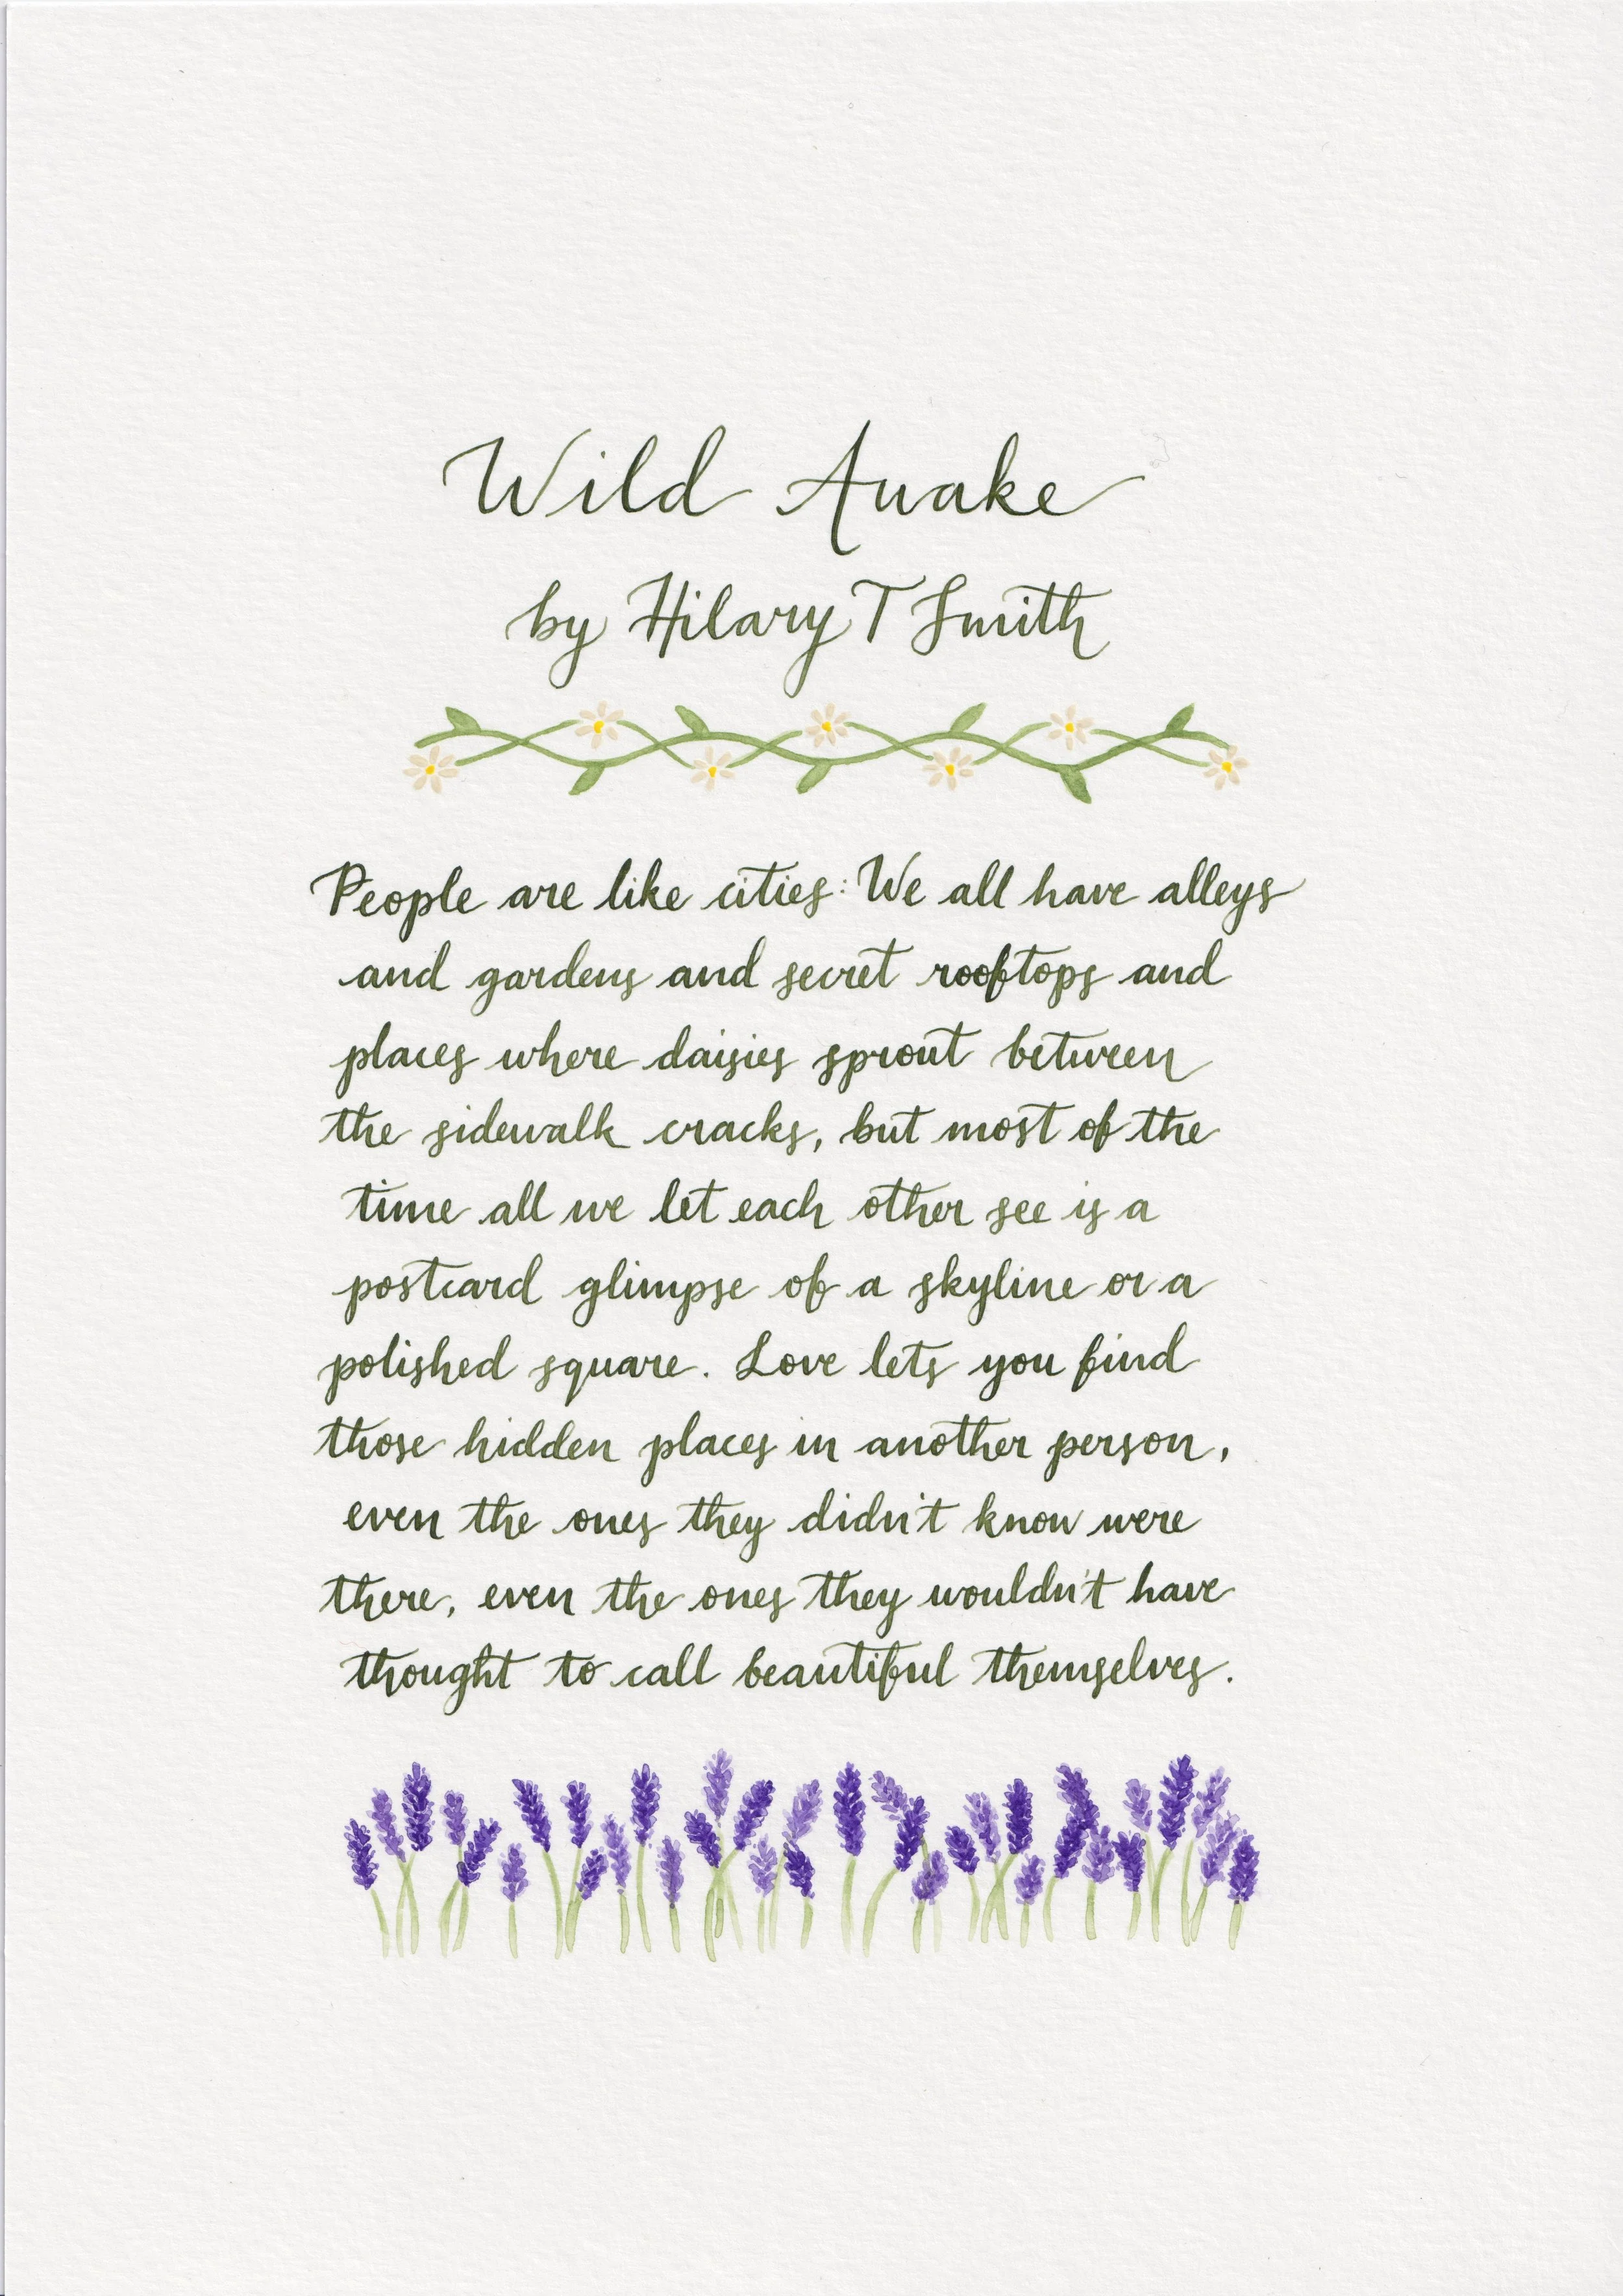 Wild Awake
by Hilary T Smith
People are like cities: We all have alleys
and gardens and secret rooftops and
places where daisies sprout between
the sidewalk cracks, but most of the
time all we let each other see is a
postcard glimpse of a skyline or a
polished square. Love lets you find
those hidden places in another person,
even the ones they didn't know were
there, even the ones they wouldn't have
thought to call beautiful themselves.